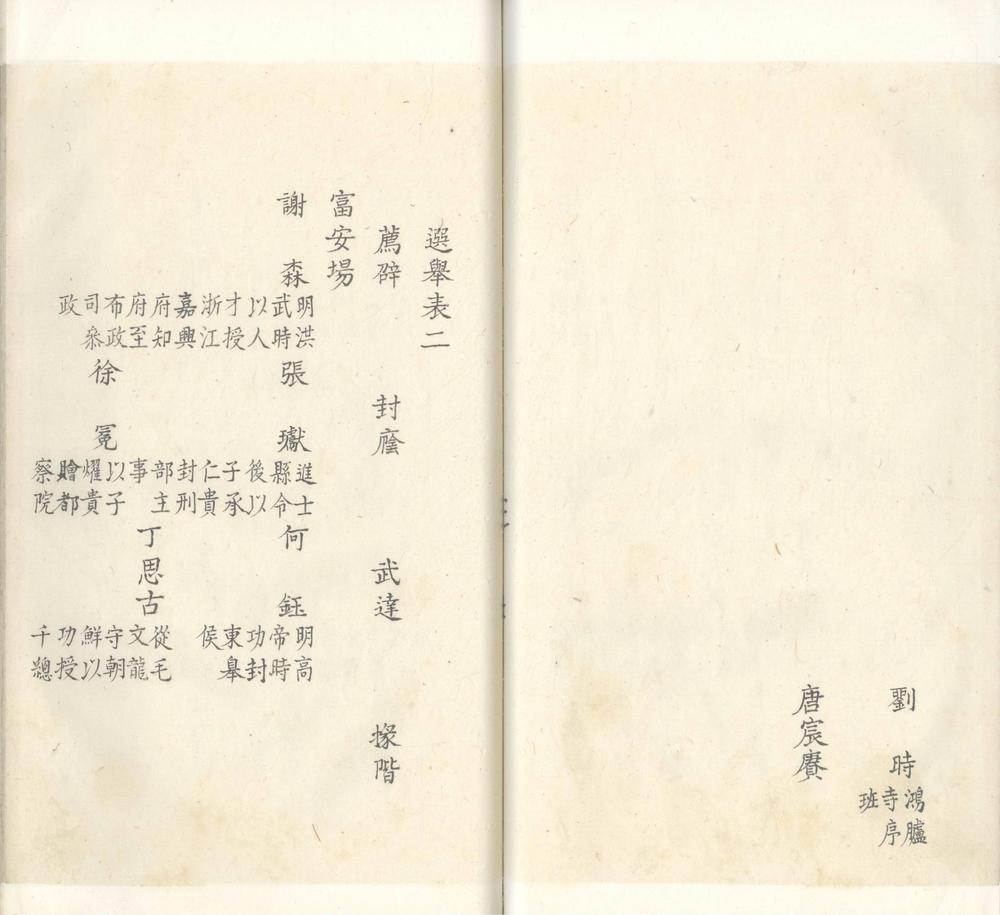 劉　時 鴻臚寺序班
唐宸賡
選舉表二
薦辟　封廕　武達　掾階
富安場
謝　森 明洪武時以人才授浙江嘉興府知府至布政司叅政
張　瓛 進士縣令後以子承仁貴封刑部主事
何　鈺 明高帝時功封東臯侯
徐　冕 以子燿貴贈都察院
丁思古 從毛文龍守朝鮮以功授千總